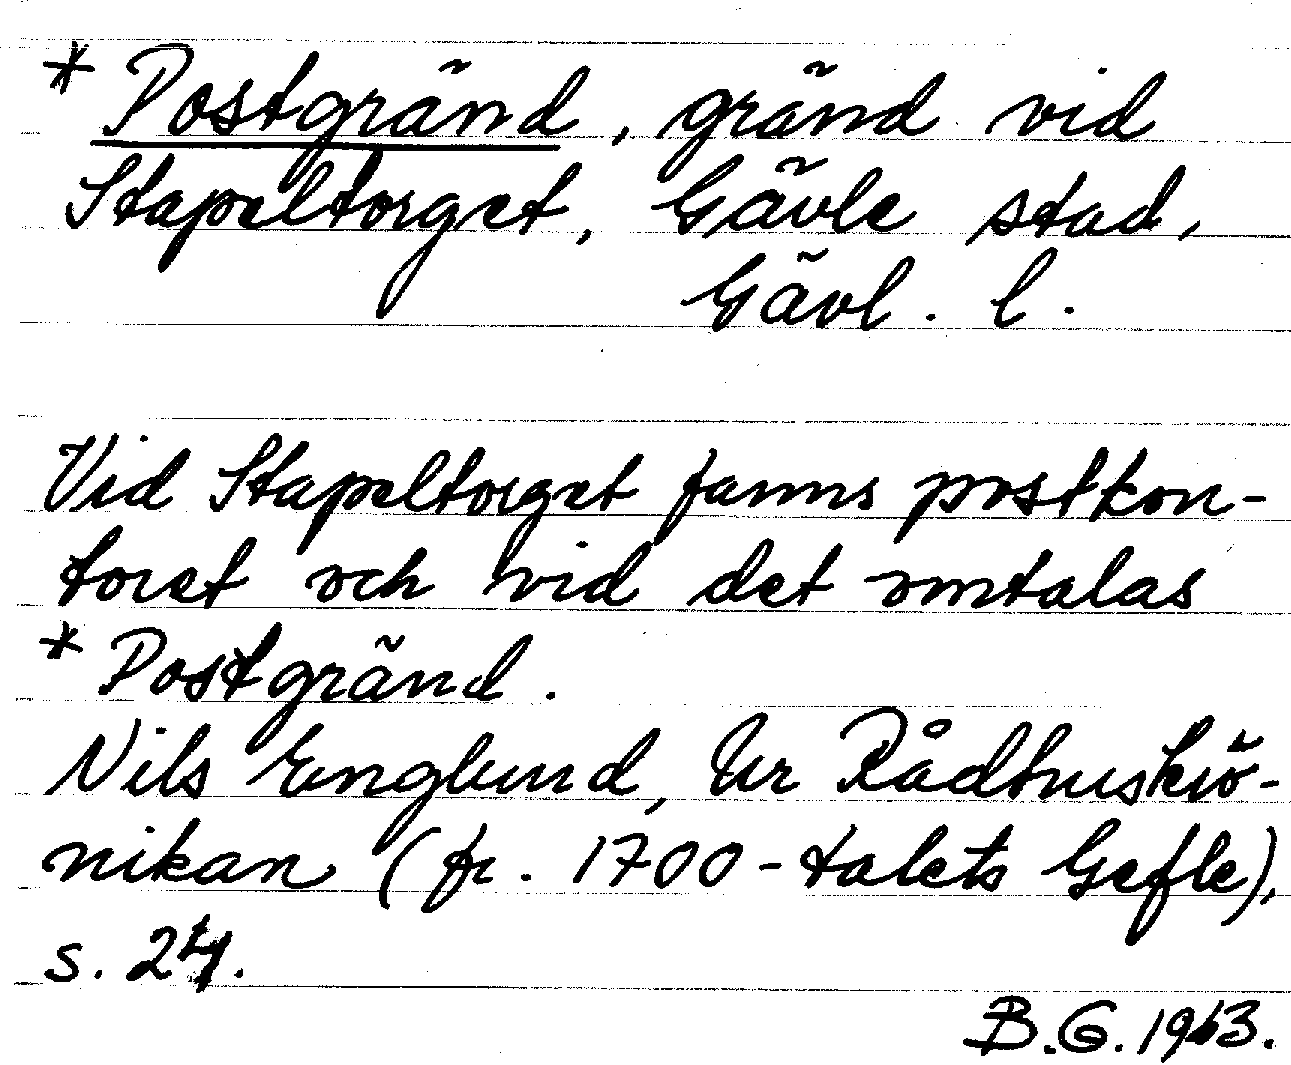 * Postgränd, gränd vid
Stapeltorget, Gävle stad,
Gävl. l.
Vid Stapeltorget fanns postkon-
toret och vid det omtalas
* Postgränd.
Nils Englund, Ur Rådhuskrö-
nikan (fr. 1700-talets Gefle),
s. 24.
B.G. 1963.